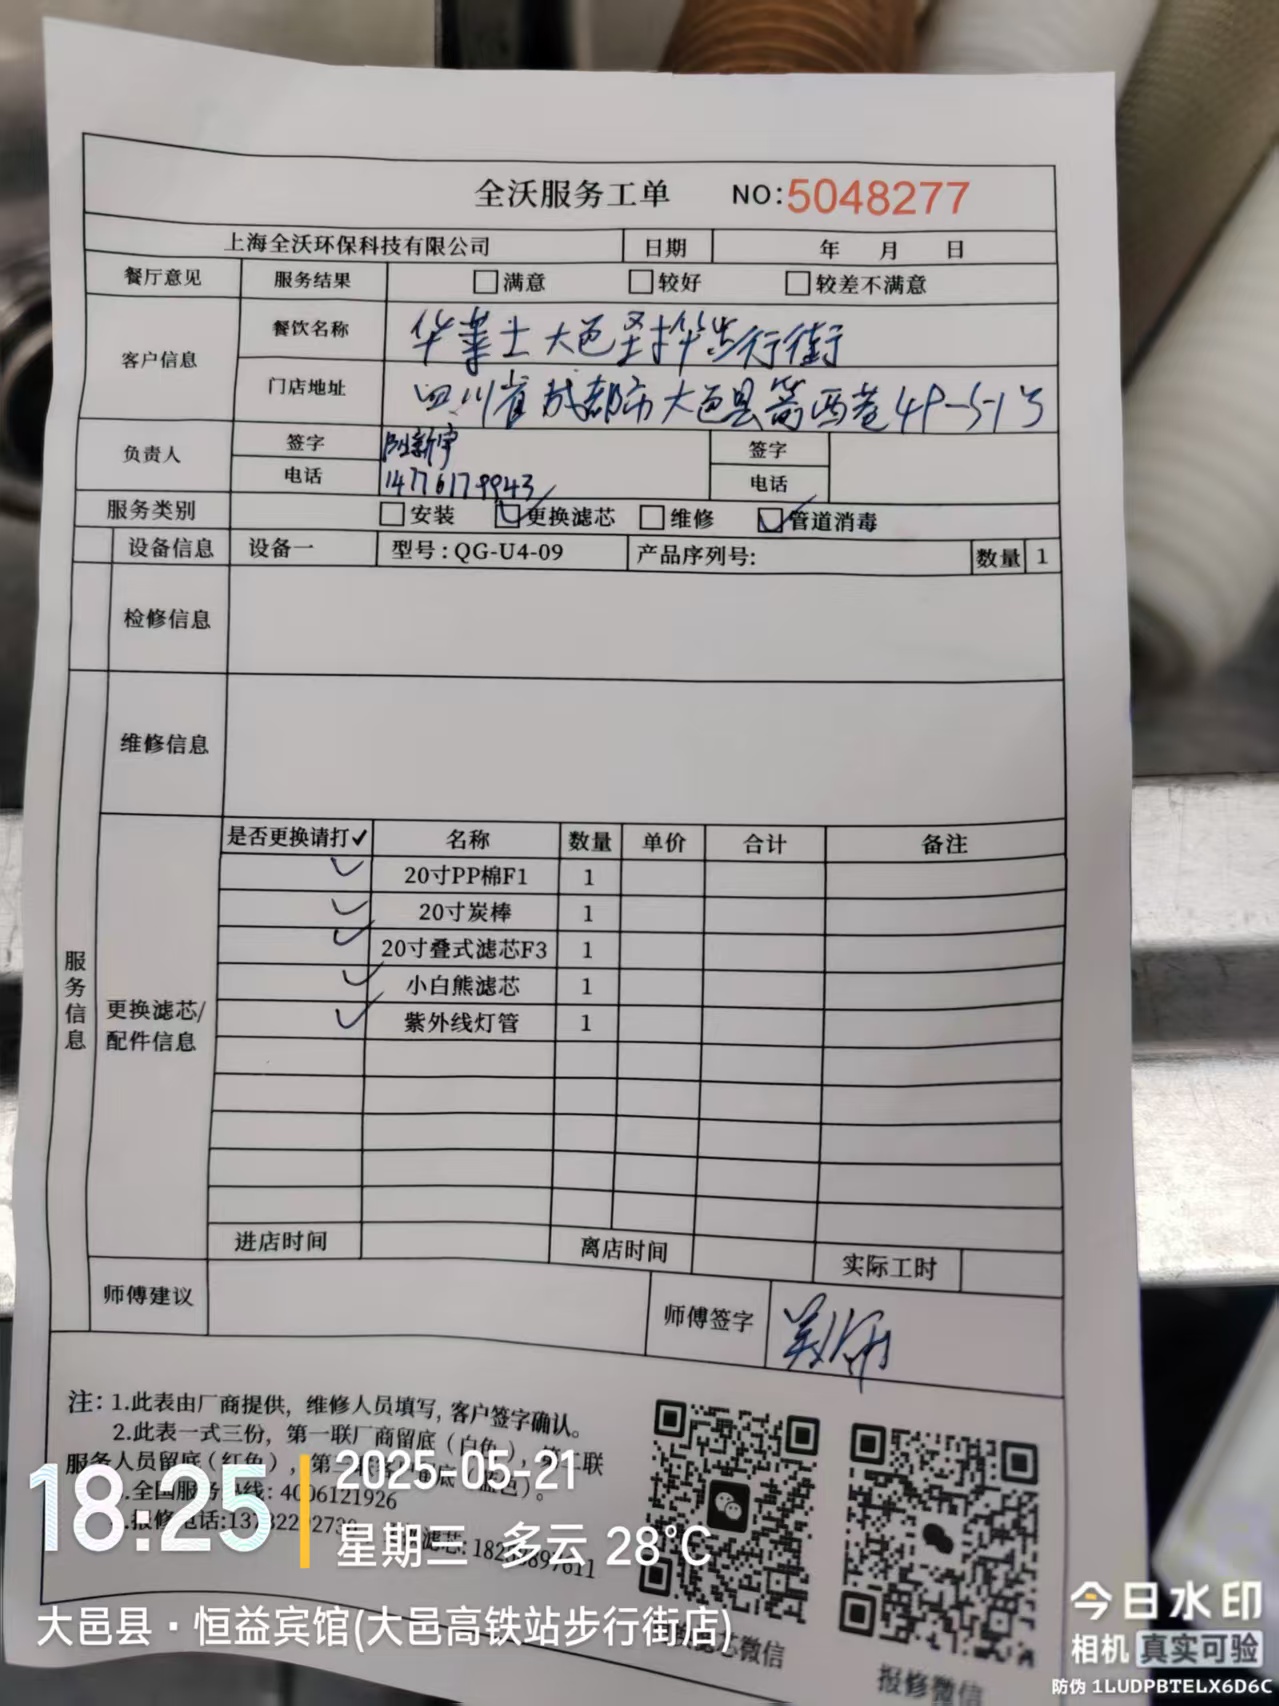 全沃服务工单 NO:5048277
上海全沃环保科技有限公司 日期 年 月 日
餐厅意见 服务结果 □满意 □较好 □较差不满意
客户信息 餐饮名称 华莱士大邑 步行街
门店地址 四川省成都市大邑县 西巷49-5-1号
负责人 签字 新宇 签字
电话 14776179943 电话
服务类别 □安装 ☑更换滤芯 □维修 ☑管道消毒
设备信息 设备一 型号:QG-U4-09 产品序列号: 数量 1
检修信息
维修信息
服务信息
更换滤芯/
配件信息
是否更换请打✓ 名称 数量 单价 合计 备注
✓ 20寸PP棉F1 1
✓ 20寸炭棒 1
✓ 20寸叠式滤芯F3 1
✓ 小白熊滤芯 1
✓ 紫外线灯管 1
进店时间 离店时间 实际工时
师傅建议 师傅签字
注: 1.此表由厂商提供, 维修人员填写, 客户签字确认。
2.此表一式三份, 第一联厂商留底(白色), 第二联
服务人员留底(红色), 第三
.全国服务热线: 4006121926
.报修电话:
滤芯:
18:25
2025-05-21
星期三 多云 28°C
大邑县·恒益宾馆(大邑高铁站步行街店)
微信
报修微信
今日水印
相机 真实可验
防伪 1LUDPBTELX6D6C